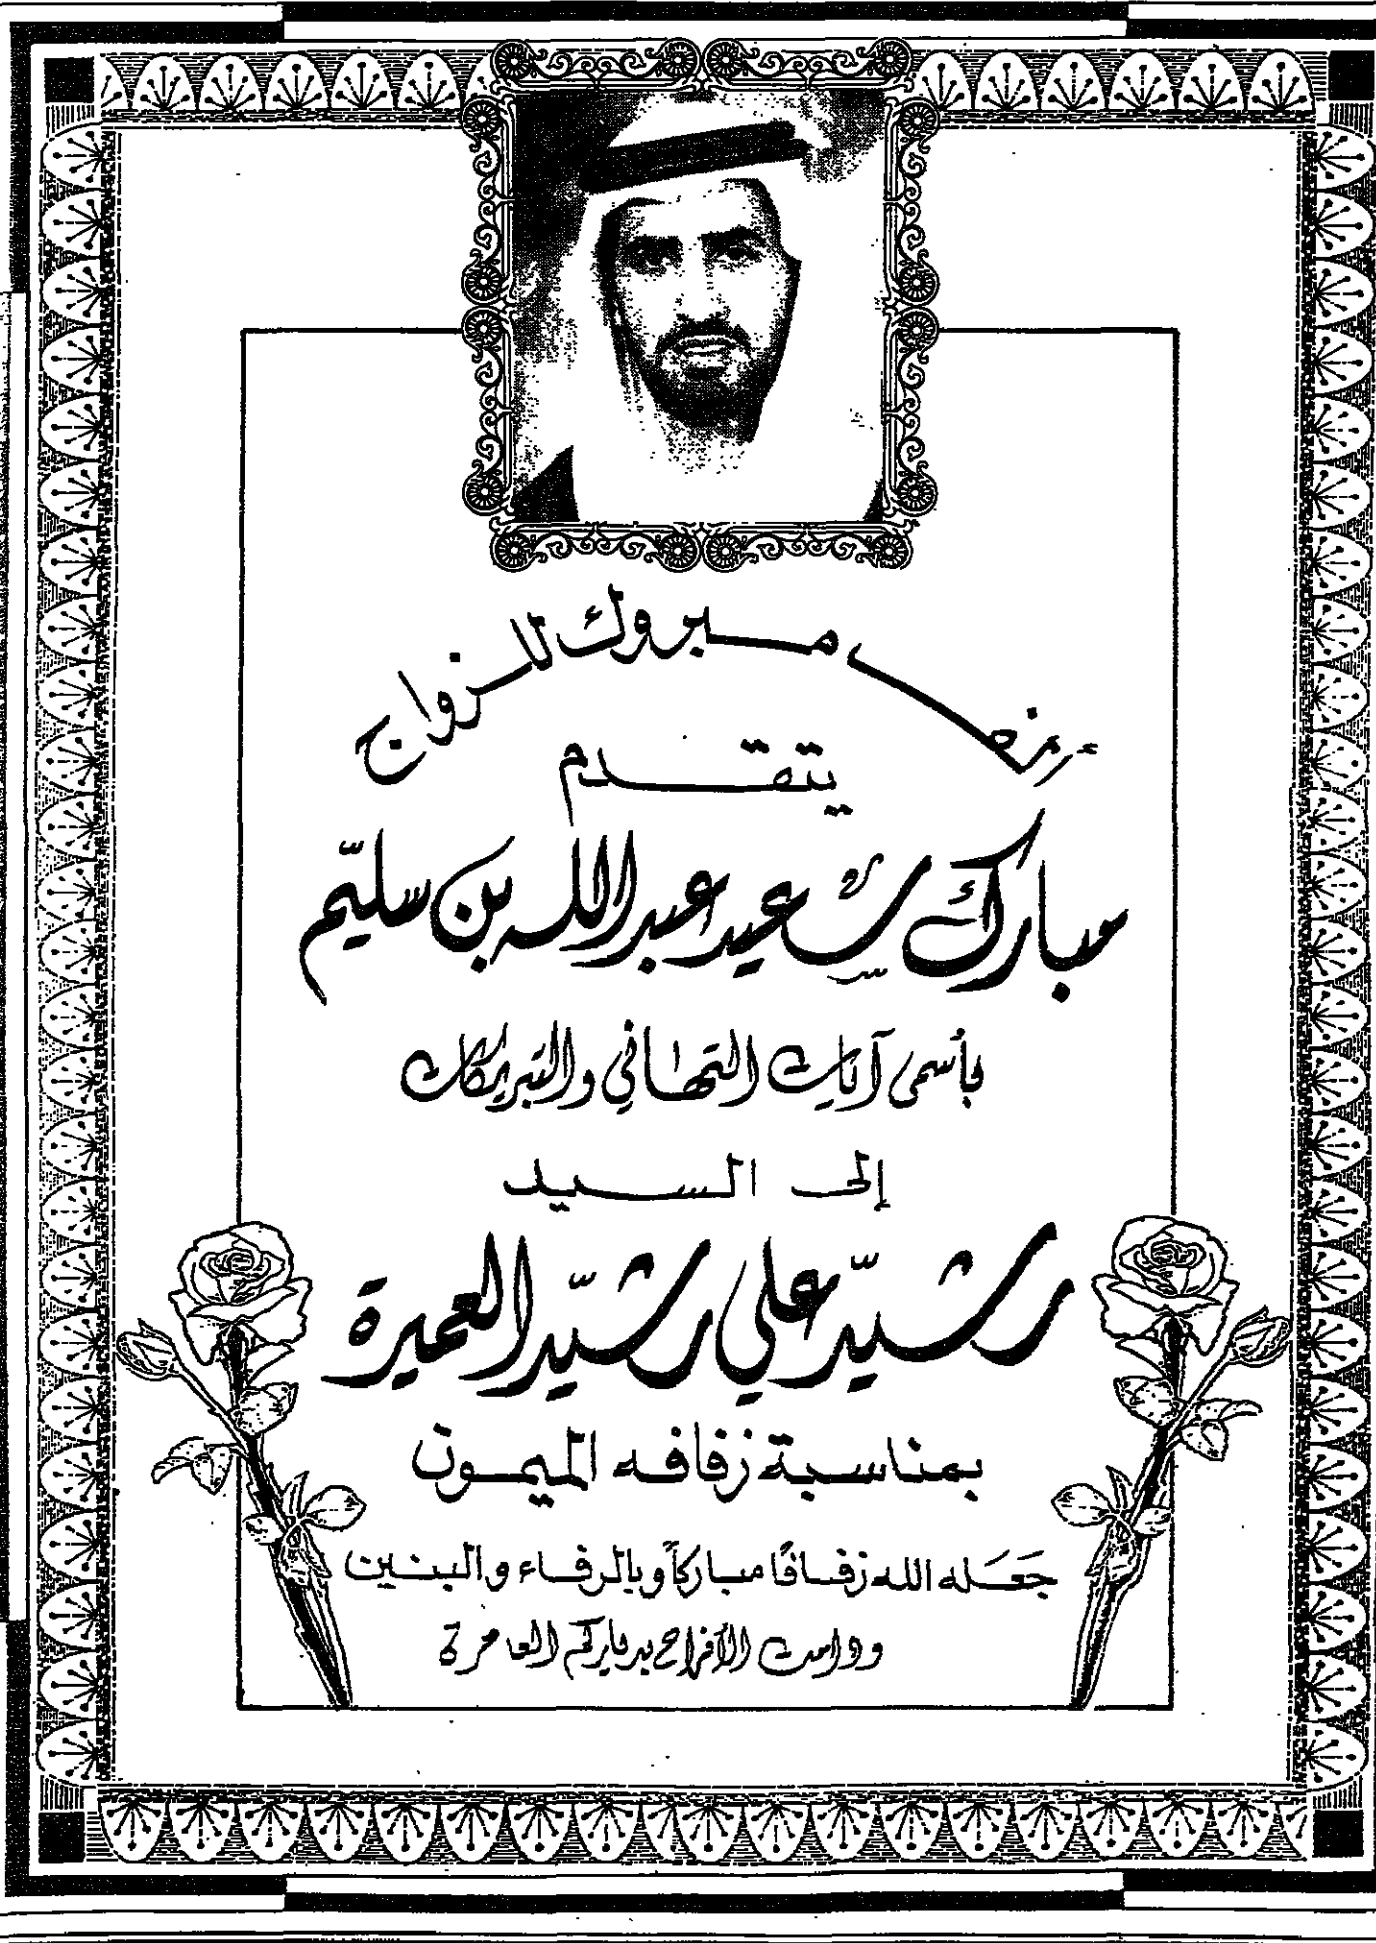 ألف مبروك للزواج
يتقدم
مبارك سعيد عبدالله بن سليم
بأسمى آيات التهاني والتبريكات
إلى السيد
رشيد علي رشيد العميرة
بمناسبة زفافه الميمون
جَعَله الله زفافًا مباركاً وبالرفاء والبنين
ودامت الأفراح بدياركم العامرة